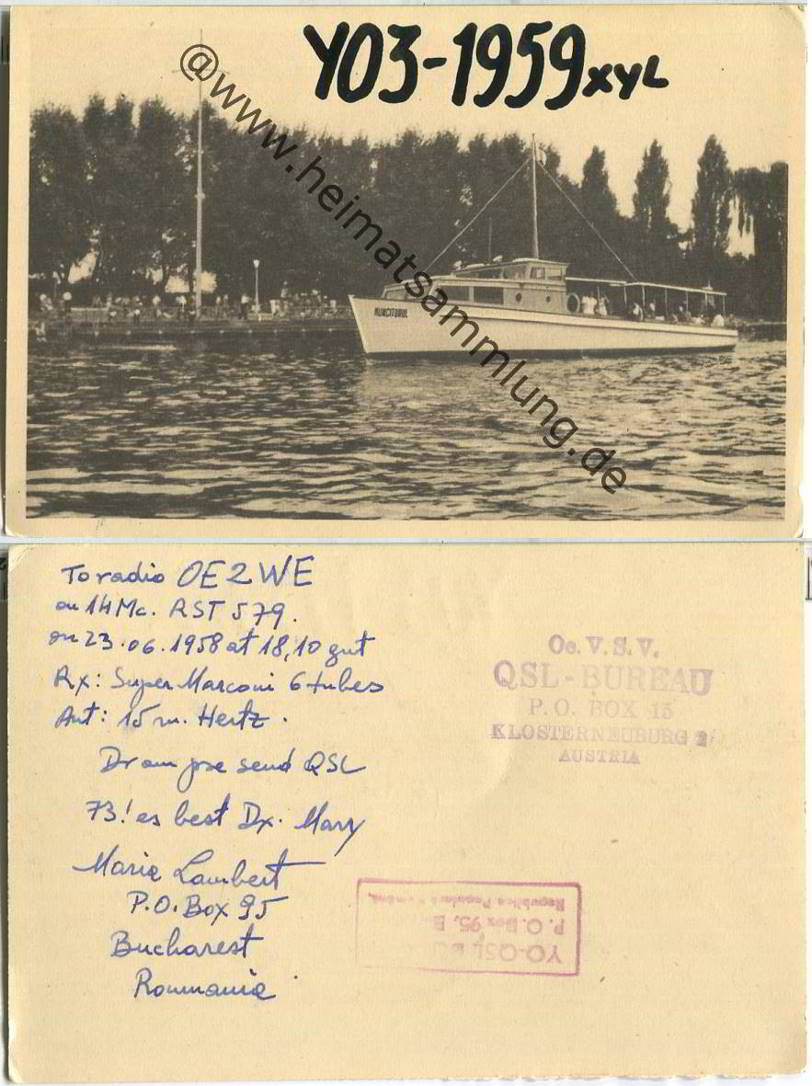 YO3-1959 XYL
@www.heimatsammlung.de
MUNCITORUL
To radio OE2WE
on 14 Mc. RST 579.
on 23.06.1958 at 18,10 gmt
Rx: Super Marconi 6 tubes
Ant: 15 m. Hertz.
Dr om pse send QSL
73! es best Dx. Mary
Maria Lambert
P.O. Box 95
Bucharest
Roumania
Oe. V. S. V.
QSL-BUREAU
P. O. BOX 15
KLOSTERNEUBURG 2
AUSTRIA
YO-QSL
P. O. Box 95,
Republica Populară Română